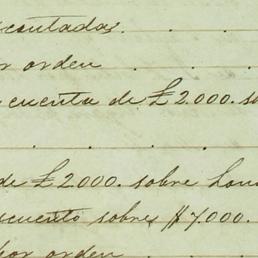 scontadas.
or orden
cuenta de £2.000. so
de £2000. sobre Lon
scuento sobre $7.000.
por orden